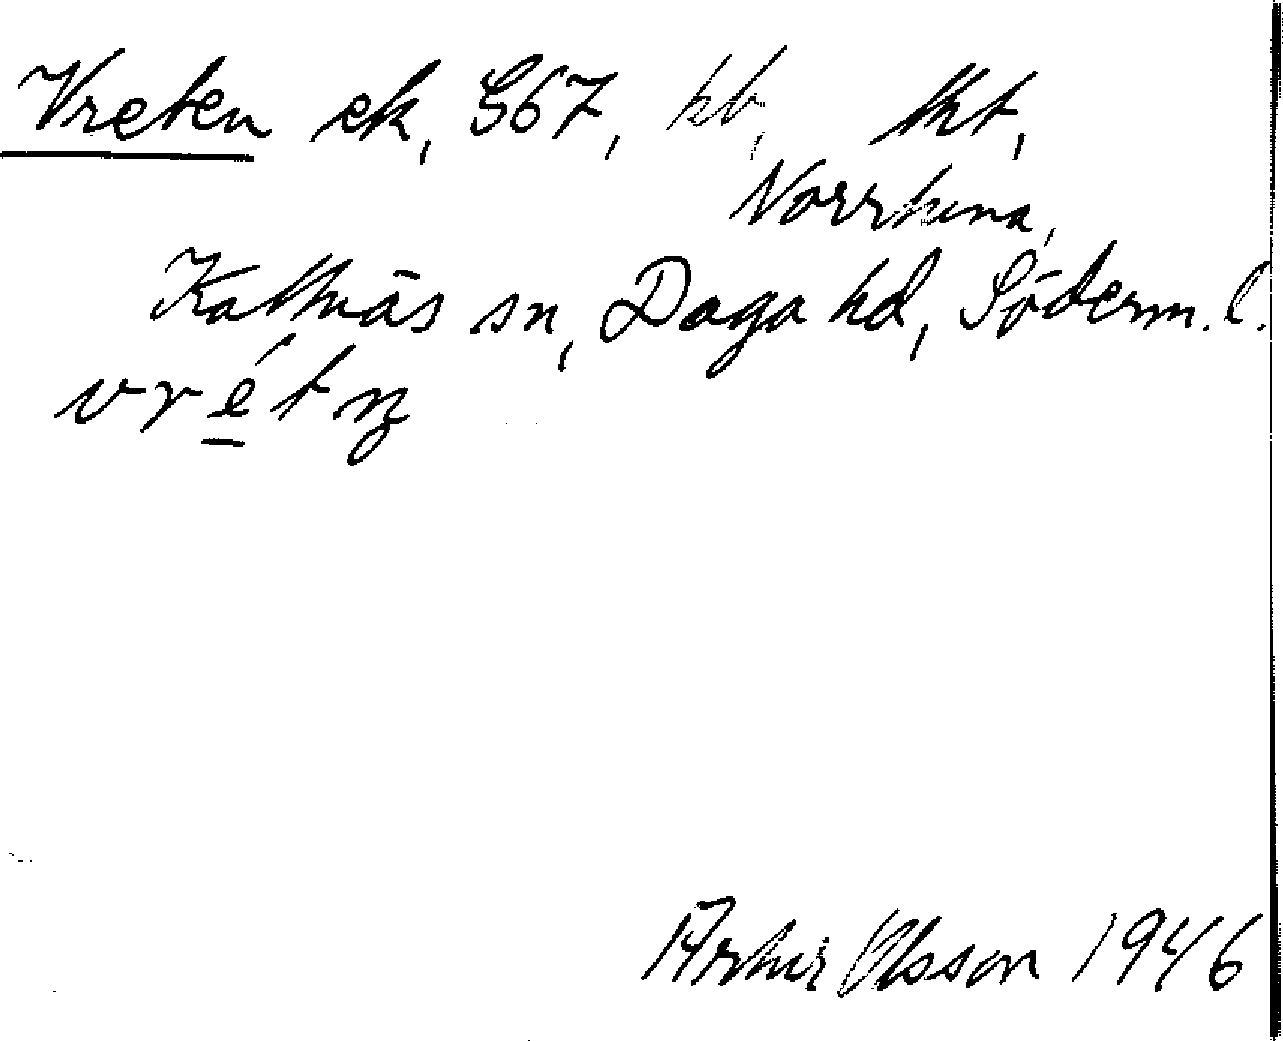 Vreten ek, S67, kb, kt,
Norrtuna,
Kattnäs sn, Daga hd, Söderm. l.
vrétn
Artur Olsson 1946